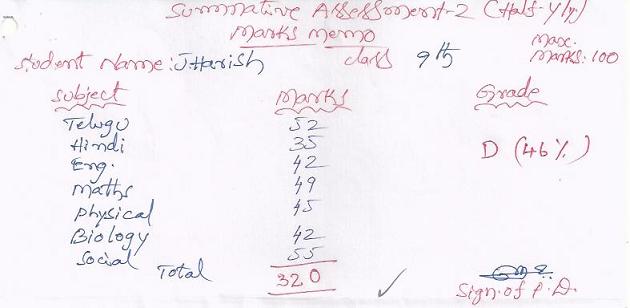 Summative Assessment-2 (Half-Yly)
Marks memo
Student Name: J Harish class 9th Max. Marks: 100
Subject Marks Grade
Telugu 52
Hindi 35 D (46%)
Eng. 42
Maths 49
Physical 45
Biology 42
Social 55
Total 320
Sign. of P.D.